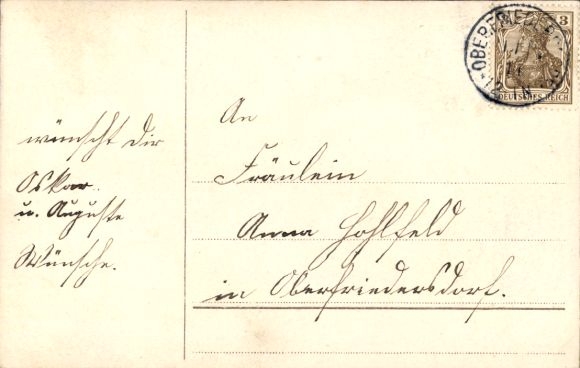 wünscht dir
Oskar.
u. Auguste
Wünsche.
An
Fräulein
Anna Hohlfeld
in Oberfriedersdorf.
3
DEUTSCHES REICH